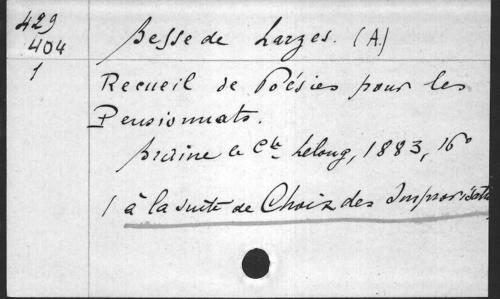 429
404
1
Besse de Larzes. (A.)
Recueil de Poésies pour les
Pensionnats.
Braine le Cte, Lelong, 1883, 16°
/ à la suite de Choix des Improvisati